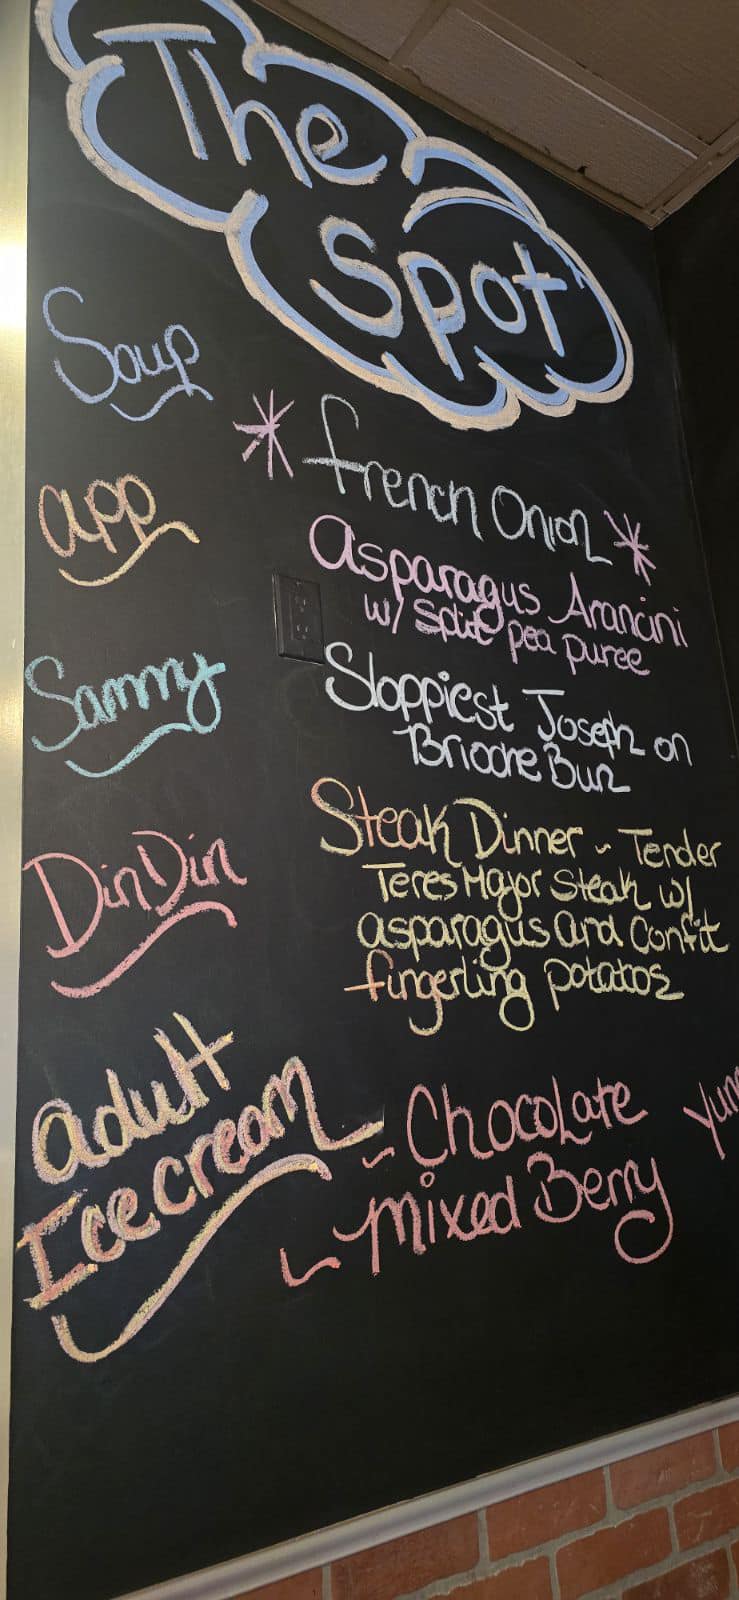 The
Spot
Soup
* French Onion *
App
Asparagus Arancini
w/ Split pea puree
Sammy
Sloppiest Joseph on
Brioche Bun
DinDin
Steak Dinner ~ Tender
Teres Major Steak w/
asparagus and Confit
fingerling potatos
adult
Ice cream
~ Chocolate
Mixed Berry